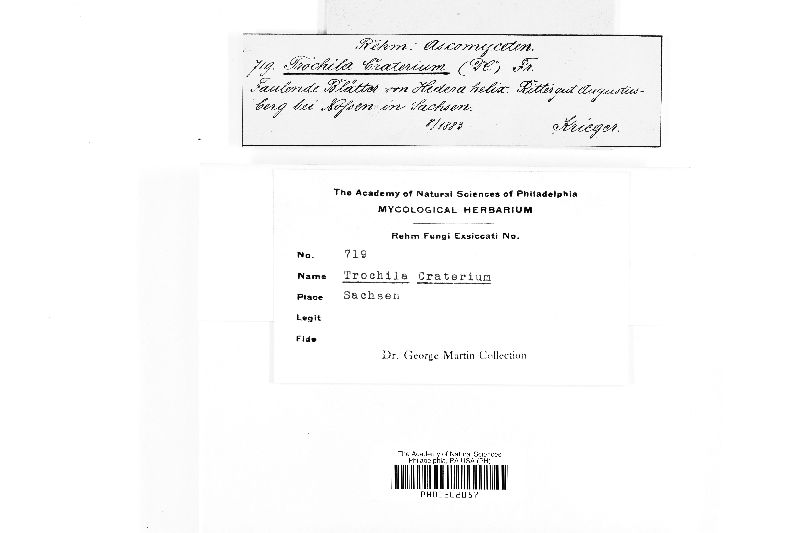 Rehm: Ascomyceten.
719. Trochila Craterium (DC) Fr.
Faulende Blätter von Hedera helix. Rittergut Augustus-
berg bei Nossen in Sachsen.
8/1883 Krieger.
The Academy of Natural Sciences of Philadelphia
MYCOLOGICAL HERBARIUM
Rehm Fungi Exsiccati No.
No. 719
Name Trochila Craterium
Place Sachsen
Legit
Fide
Dr. George Martin Collection
The Academy of Natural Sciences
Philadelphia, PA USA (PH)